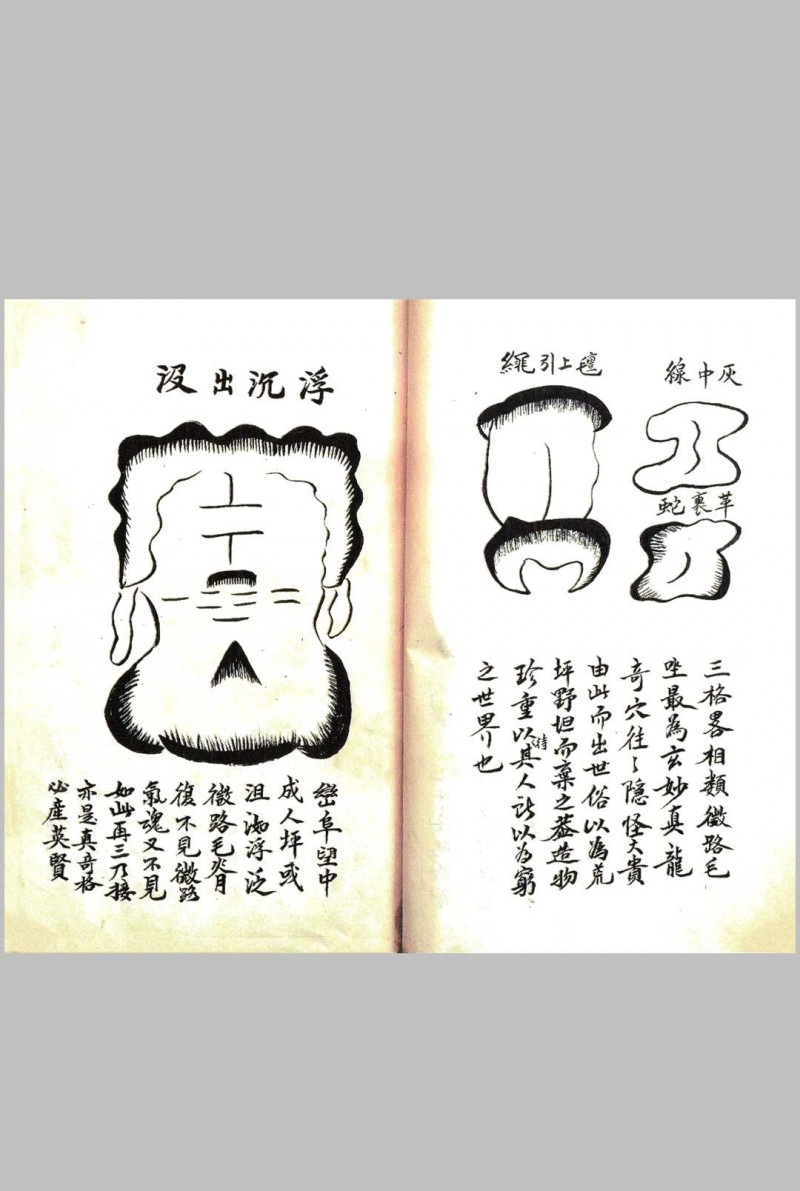 灰中線
草裏蛇
氊上引繩
三格畧相類微路毛
坐最為玄妙真龍
奇穴往々隠怪大貴
由此而出世俗以為荒
坪野坦而棄之葢造物
珍重以待其人訴以為窮
之世界也
浮沉出没
巒阜望中
成人坪或
沮洳浮泛
微路毛
復不見微路
氣魂又不見
如此再三乃接
亦是真奇格
必産英賢